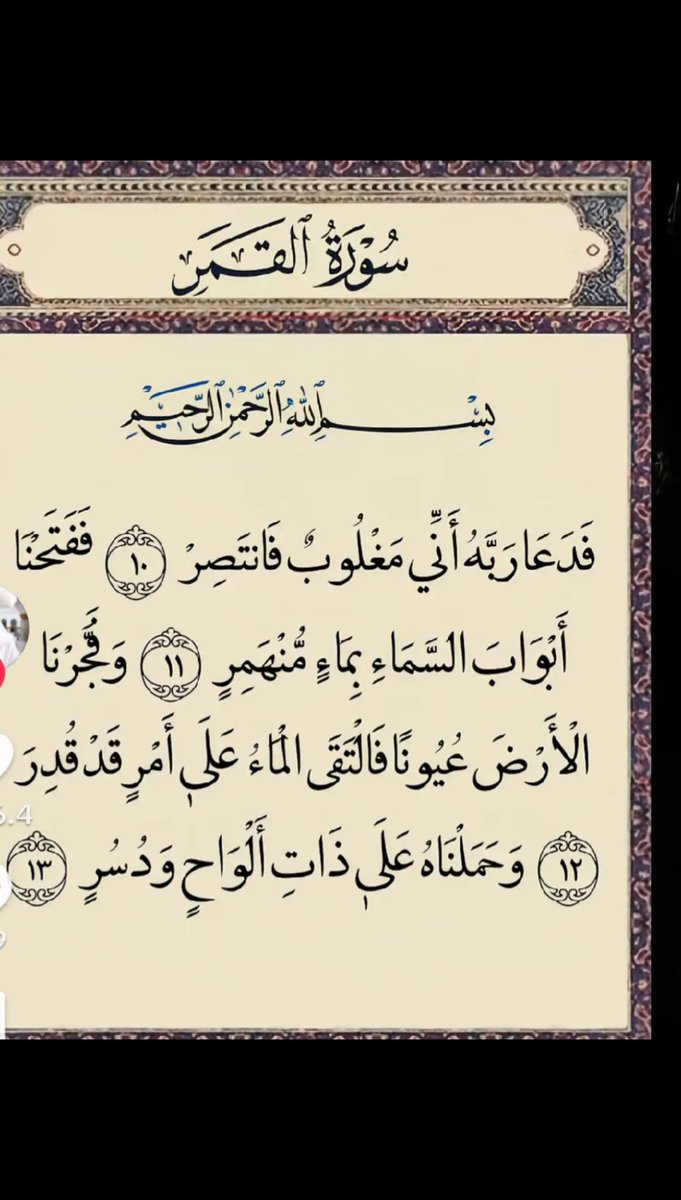 سُوْرَةُ ٱلْقَمَرِ
بِسْمِ ٱللَّهِ ٱلرَّحْمَٰنِ ٱلرَّحِيمِ
فَدَعَا رَبَّهُ أَنِّي مَغْلُوبٌ فَانتَصِرْ ١٠ فَفَتَحْنَا
أَبْوَابَ السَّمَاءِ بِمَاءٍ مُّنْهَمِرٍ ١١ وَفَجَّرْنَا
الْأَرْضَ عُيُونًا فَالْتَقَى الْمَاءُ عَلَى أَمْرٍ قَدْ قُدِرَ
١٢ وَحَمَلْنَاهُ عَلَى ذَاتِ أَلْوَاحٍ وَدُسُرٍ ١٣